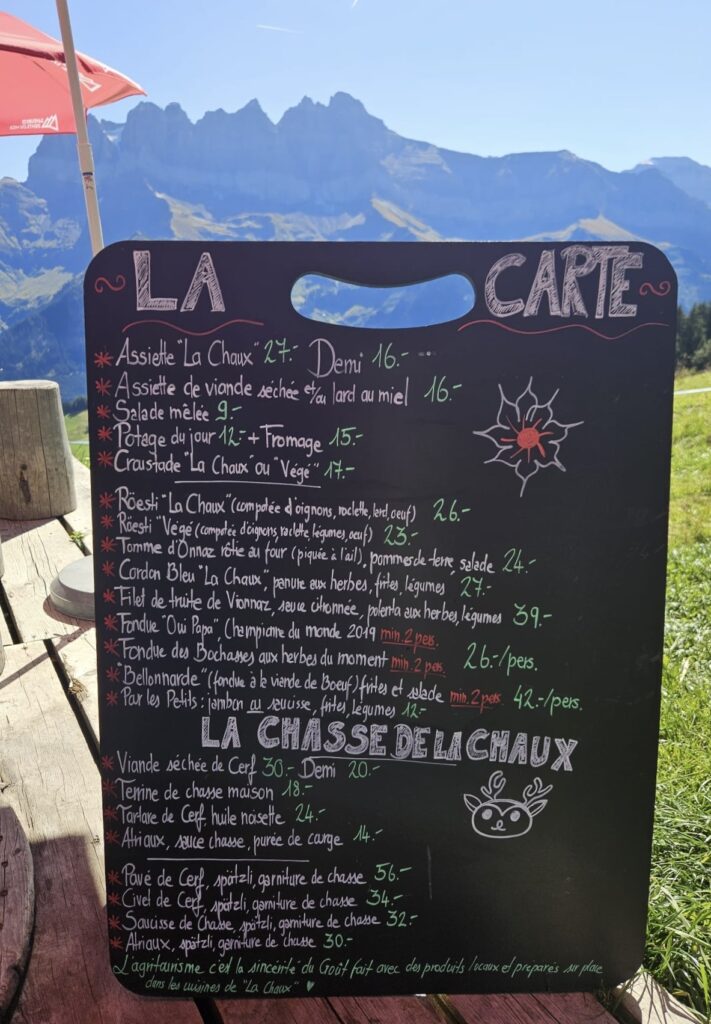 LA CARTE
* Assiette "La Chaux" 27.- Demi 16.-
* Assiette de viande séchée et/ou lard au miel 16.-
* Salade mêlée 9.-
* Potage du jour 12.- + Fromage 15.-
* Croustade "La Chaux" ou "Végé" 17.-
* Röesti "La Chaux" (compotée d'oignons, raclette, lard, oeuf) 26.-
* Röesti "Végé" (compotée d'oignons, raclette, légumes, oeuf) 23.-
* Tomme d'Onnaz rôtie au four (piquée à l'ail), pommes de terre, salade 24.-
* Cordon Bleu "La Chaux", panure aux herbes, frites, légumes 27.-
* Filet de truite de Vionnaz, sauce citronnée, polenta aux herbes, légumes 39.-
* Fondue "Oui Papa" Championne du monde 2019 min. 2 pers.
* Fondue des Bochasses aux herbes du moment min. 2 pers. 26.-/pers.
* "Bellonnarde" (fondue à la viande de Boeuf) frites et salade min. 2 pers. 42.-/pers.
* Par les Petits : jambon ou saucisse, frites, légumes 12.-
LA CHASSE DE LA CHAUX
* Viande séchée de Cerf 30.- Demi 20.-
* Terrine de chasse maison 18.-
* Tartare de Cerf, huile noisette 24.-
* Atriaux, sauce chasse, purée de courge 14.-
* Pavé de Cerf, spätzli, garniture de chasse 56.-
* Civet de Cerf, spätzli, garniture de chasse 34.-
* Saucisse de Chasse, spätzli, garniture de chasse 32.-
* Atriaux, spätzli, garniture de chasse 30.-
L'agritourisme c'est la sincérité du Goût fait avec des produits locaux et préparés sur place
dans les cuisines de "La Chaux" ♥